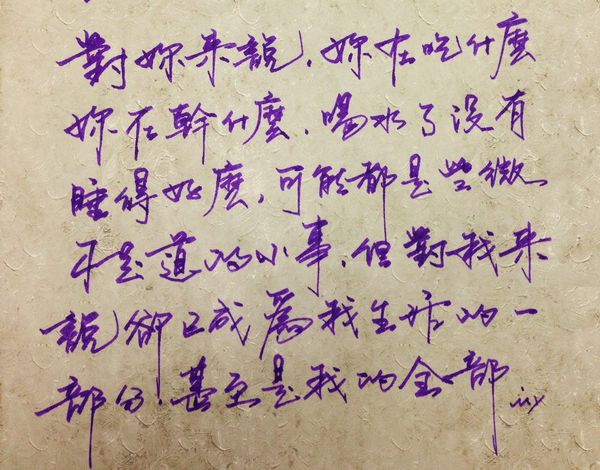 對妳来說，妳在吃什麼
妳在幹什麼，喝水了没有
睡得好麼，可能都是些微
不足道的小事，但對我来
說卻已成爲我生活的一
部分！甚至是我的全部